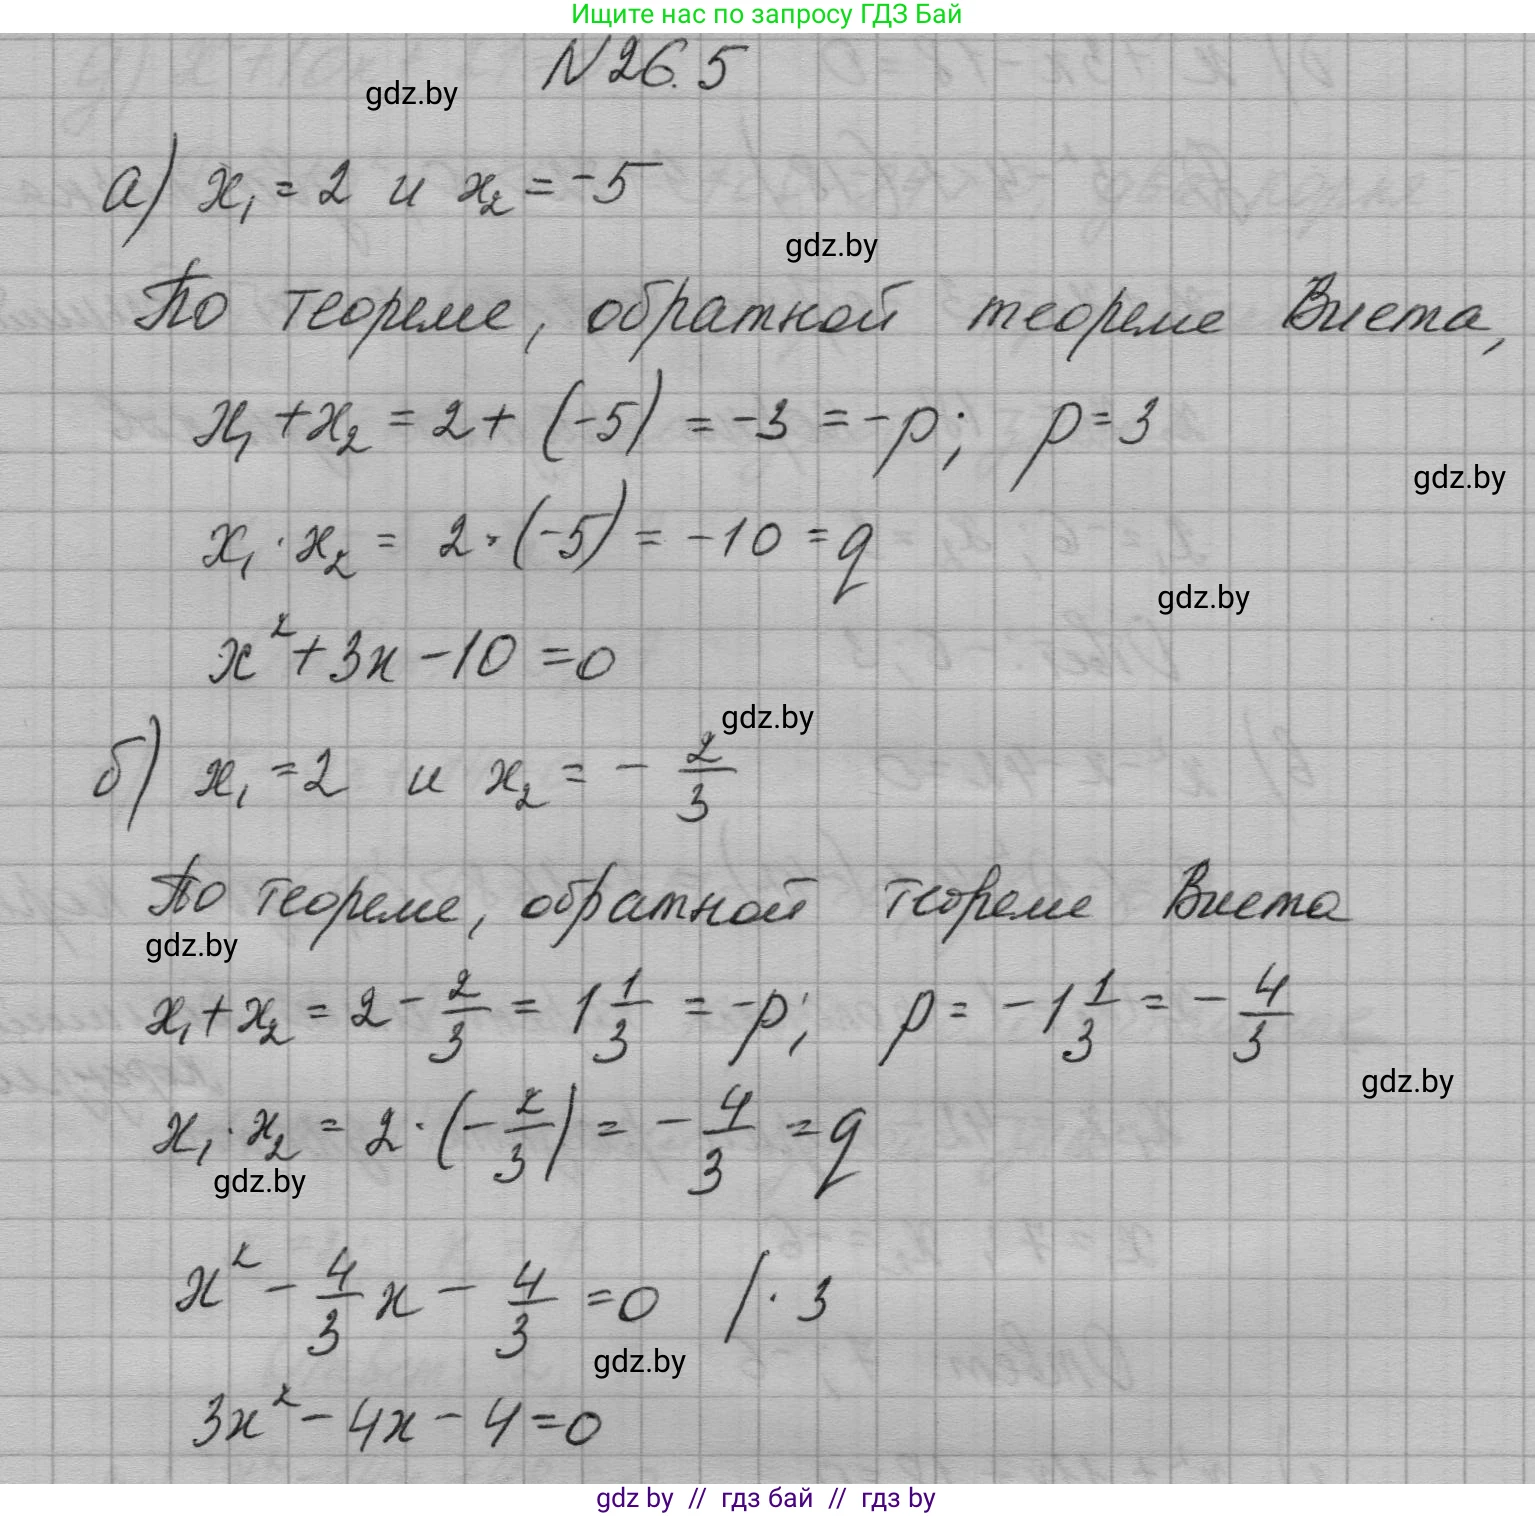 Ищите нас по запросу ГДЗ Бай
N 26.5
gdz.by
а) x₁ = 2 и x₂ = -5
gdz.by
По теореме, обратной теореме Виета,
x₁ + x₂ = 2 + (-5) = -3 = -p; p = 3
gdz.by
x₁ · x₂ = 2 · (-5) = -10 = q
gdz.by
x² + 3x - 10 = 0
gdz.by
б) x₁ = 2 и x₂ = - 2/3
По теореме, обратной теореме Виета
gdz.by
x₁ + x₂ = 2 - 2/3 = 1 1/3 = -p; p = -1 1/3 = - 4/3
gdz.by
x₁ · x₂ = 2 · (- 2/3) = - 4/3 = q
gdz.by
x² - 4/3 x - 4/3 = 0 / · 3
gdz.by
3x² - 4x - 4 = 0
gdz by // гдз бай // гдз by